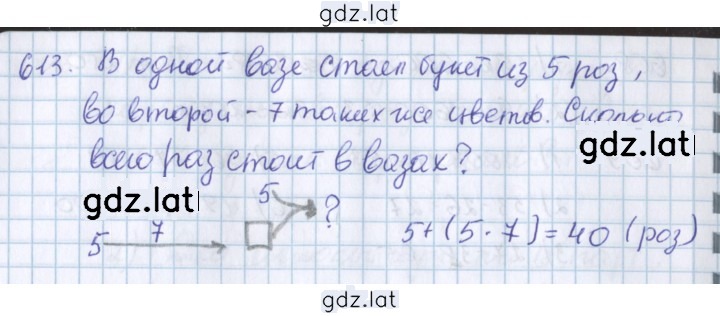 gdz.lat
613. В одной вазе стоит букет из 5 роз,
во второй - 7 таких же цветов. Сколько
gdz.lat
всего роз стоит в вазах?
gdz.lat
5 ?
7
5
5+(5·7)=40 (роз)
gdz.lat